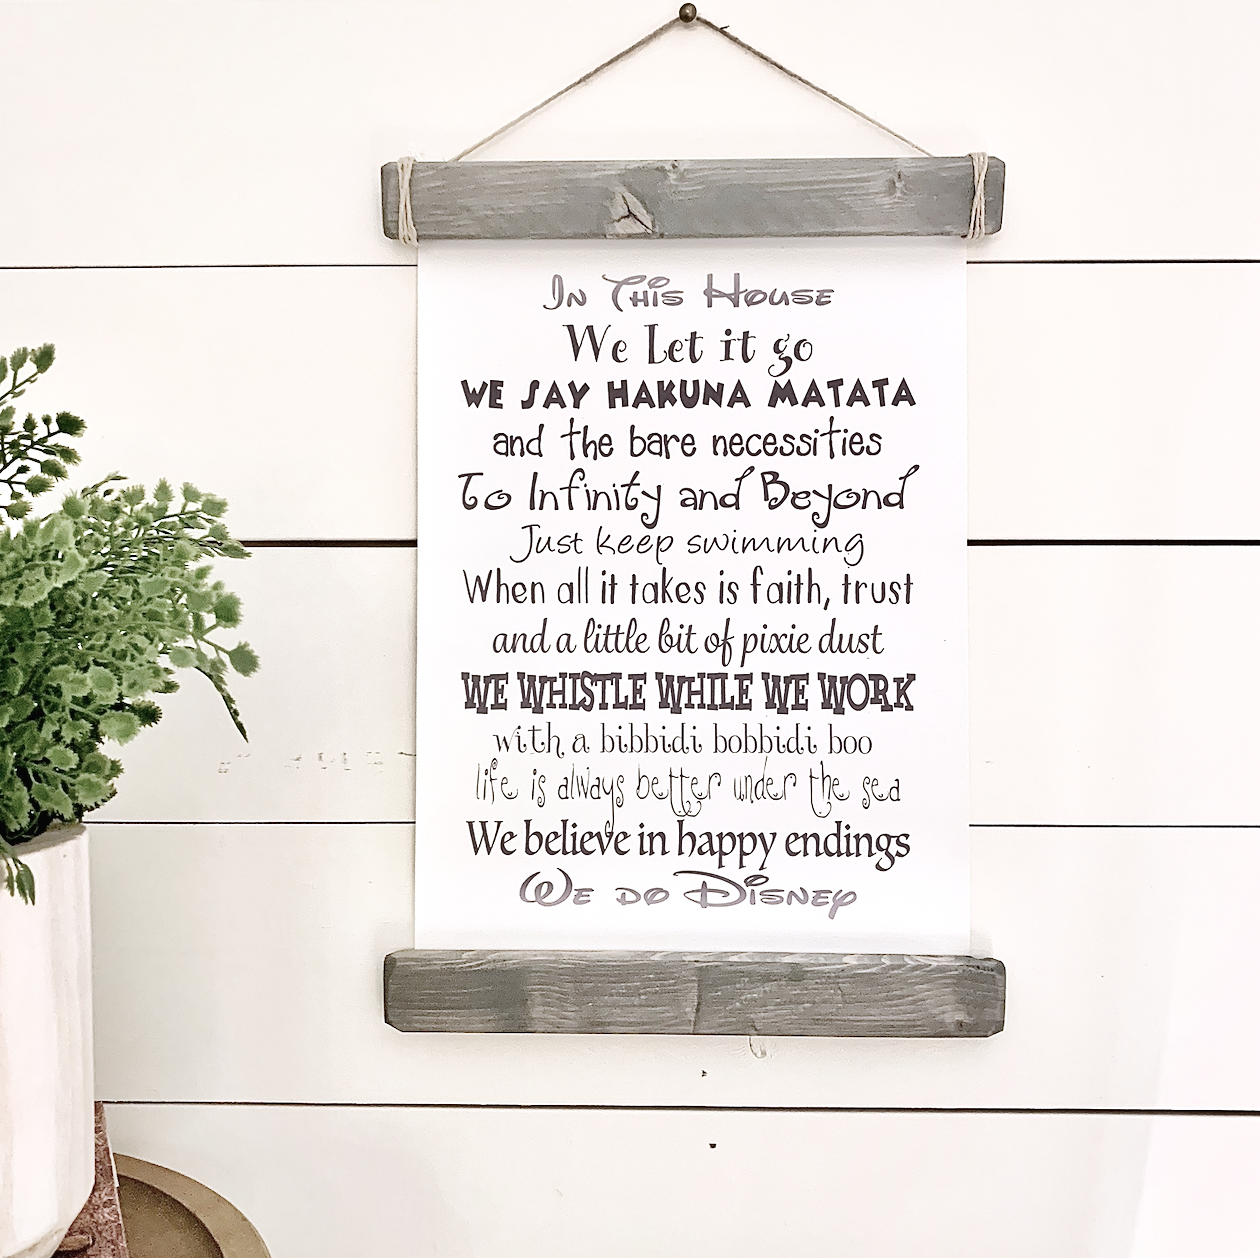 In This House
We Let it go
WE SAY HAKUNA MATATA
and the bare necessities
To Infinity and Beyond
Just keep swimming
When all it takes is faith, trust
and a little bit of pixie dust
WE WHISTLE WHILE WE WORK
with a bibbidi bobbidi boo
life is always better under the sea
We believe in happy endings
We do Disney